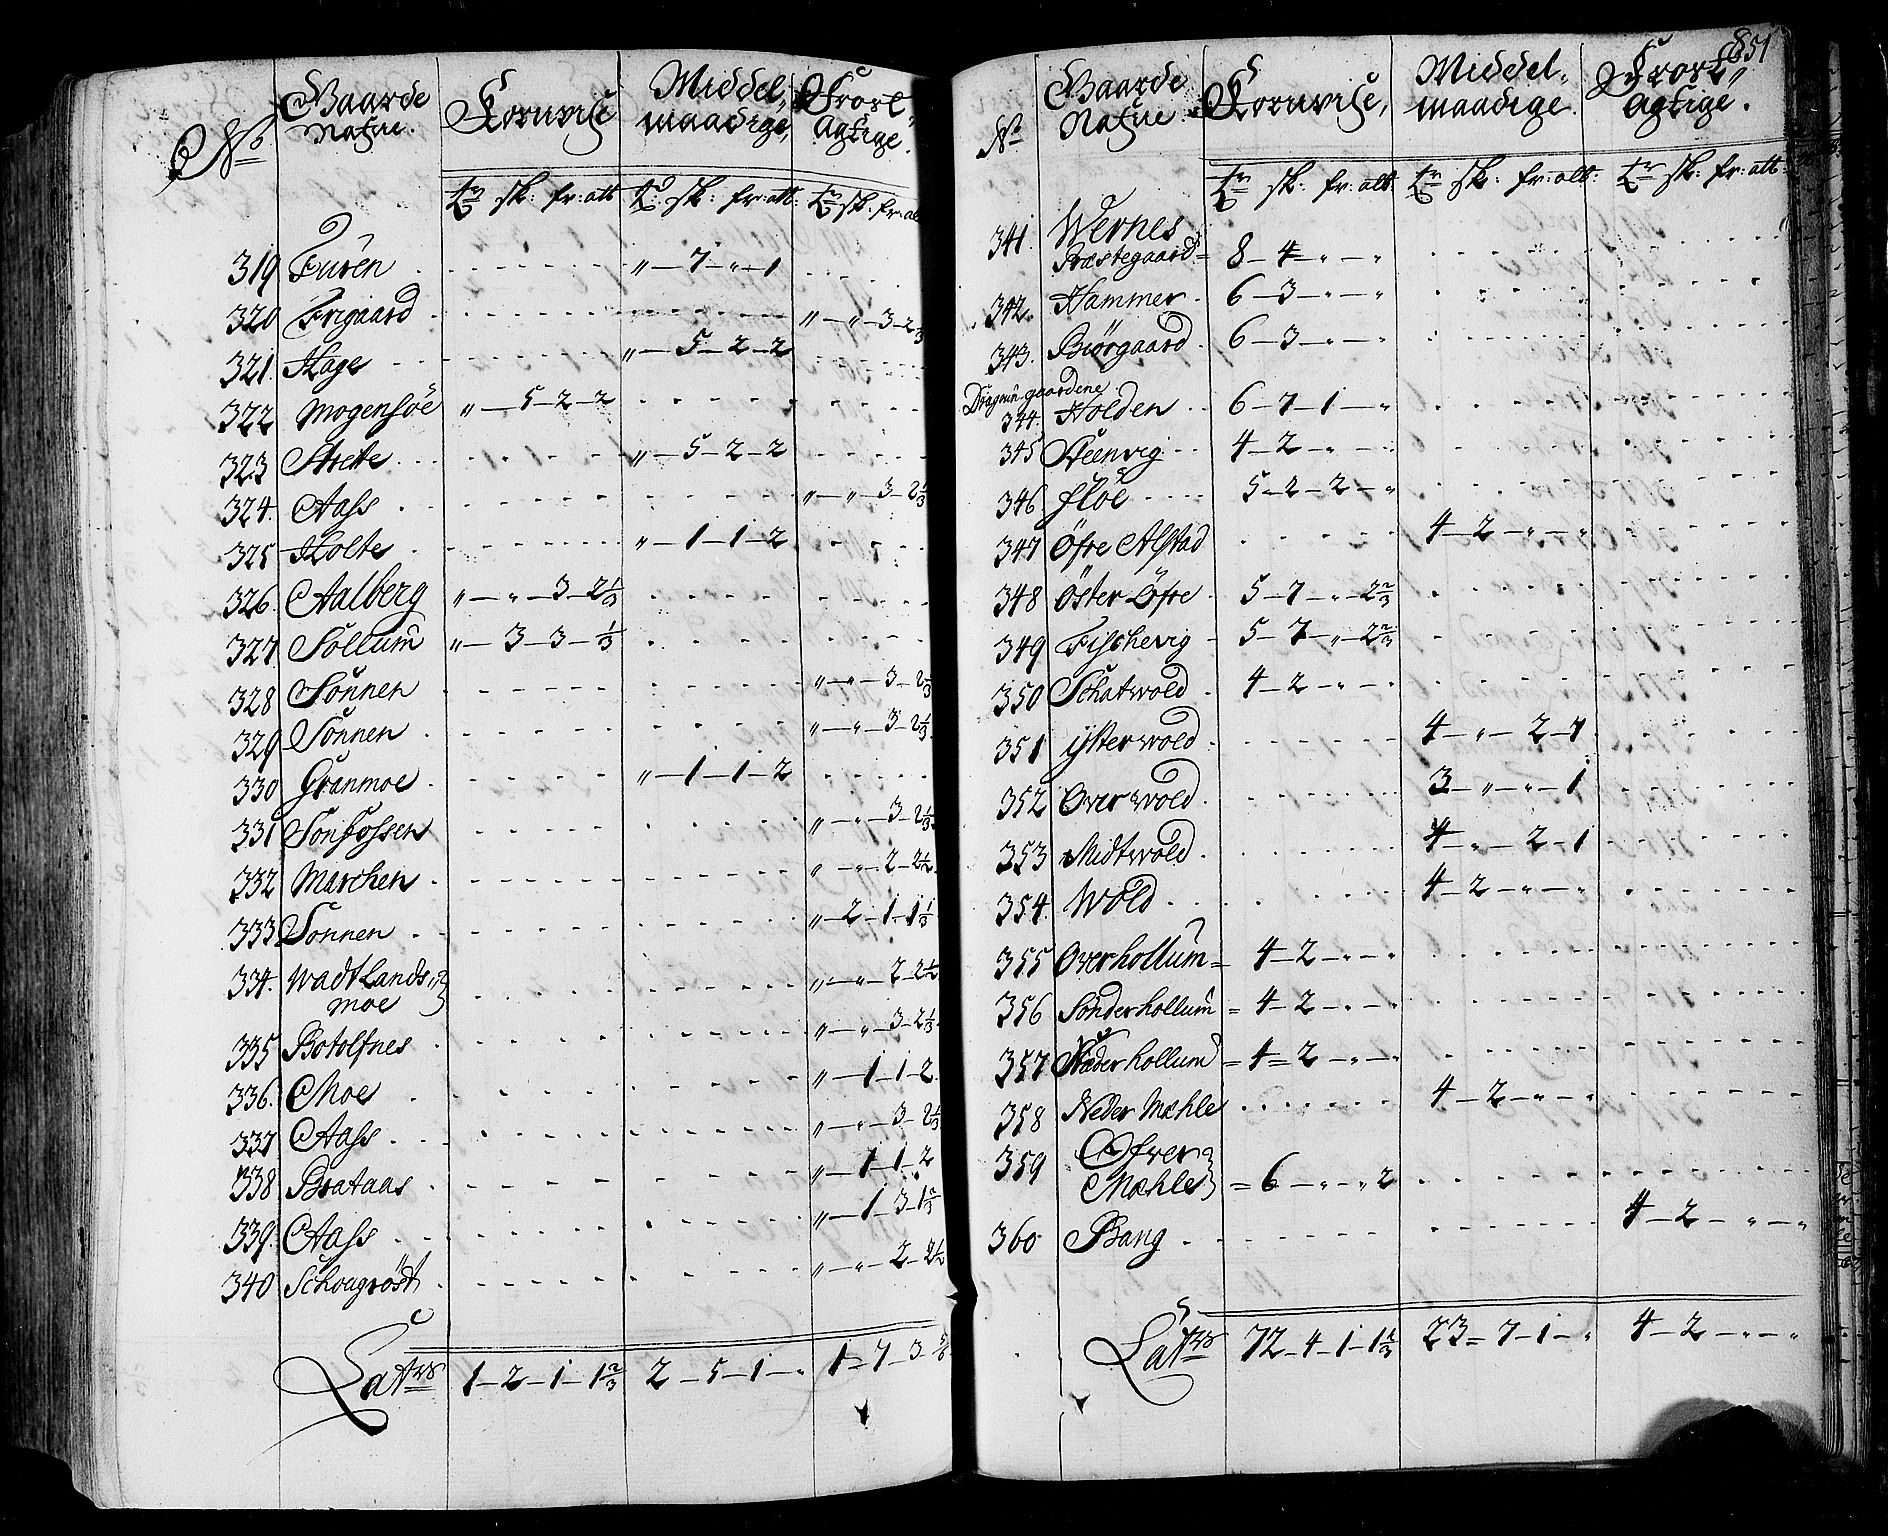 No Gaarde Nafne. Kornvise Middelmaadige, Frostagtige.
tr sk: fr: alb tr sk: fr: alb: tr sk: fr: alb
319 Furen „ — 7 — „ — 1
320 Frigaard „ — „ — 3 — 2 1/3
321 Hage „ — 5 — 2 — 2
322 Mogensöe „ — 5 — 2 — 2
323 Strette „ — 5 — 2 — 2
324 Aass „ — „ — 3 — 2 1/3
325 Holte „ — 1 — 1 — 2
326 Aalberg „ — „ — 3 — 2 1/3
327 Sollum „ — 3 — 3 — 1/3
328 Sonnen „ — „ — 3 — 2 1/3
329 Sonnen „ — „ — 3 — 2 1/3
330 Granmoe „ — 1 — 1 — 2
331 Sonfossen „ — „ — 3 — 2 1/3
332 Marchen „ — „ — 2 — 2 1/2
333 Sonnen „ — 2 — 1 — 1 1/3
334 Wadtlands-
moe „ — „ — 2 — 2 1/2
335 Botolfnes „ — „ — 3 — 2 1/3
336 Moe „ — 1 — 1 — 2
337 Aass „ — „ — 3 — 2 1/3
338 Brataas „ — 1 — 1 — 2
339 Aass „ — 1 — 3 — 1 2/3
340 Schougröst „ — „ — 2 — 2 1/2
Latus 1 — 2 — 1 — 1 2/3 2 — 5 — 1 — „ 1 — 7 — 3 — 5/6
851
No Gaarde Nafne. Kornvise, Middelmaadige. Frostagtige.
tr sk: fr: alb: tr sk: fr: alb: tr sk: fr: alb:
341. Wernes
Præstegaard 8 — 4 — „ — „
342. Hammer 6 — 3 — „ — „
343. Biörgaard 6 — 3 — „ — „
Dragoun gaardene
344. Holden 6 — 7 — 1 — „
345 Steenvig 4 — 2 — „ — „
346 Floe 5 — 2 — 2 — „
347 Öfre Alstad 4 — 2 — „ — „
348 Öster Öfre 5 — 7 — „ — 2 2/3
349 Fischevig 5 — 7 — „ — 2 2/3
350 Schatwold 4 — 2 — „ — „
351 ysterwold 4 — „ — 2 — 1
352 Overwold 3 — „ — „ — 1
353 Midtwold 4 — „ — 2 — 1
354. Wold 4 — 2 — „ — „
355 Overhollum 4 — 2 — „ — „
356 Sönderhollum 4 — 2 — „ — „
357 Næderhollum 4 — 2 — „ — „
358 Neder Mæhle 4 — 2 — „ — „
359 Ofver
Mæhle 6 — „ — „ 2
360 Bang 4 — 2 — „ — „
Latus 72 — 4 — 1 — 1 1/3 23 — 7 — 1 — „ 4 — 2 — „ — „